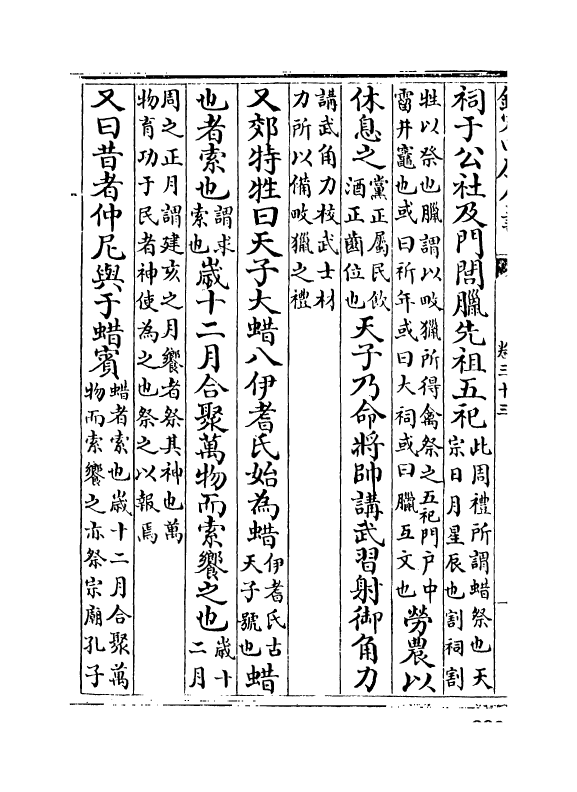 卷三十三
祠于公社及門閭臘先祖五祀此周禮所謂蜡祭也天宗日月星辰也割祠割
牲以祭也臘謂以畋獵所得禽祭之五祀門户中霤井竈也或曰祈年或曰大祠或曰臘互文也勞農以
休息之黨正屬民飲酒正齒位也天子乃命將帥講武習射御角力
講武角力校武士材力所以備畋獵之禮
又郊特牲曰天子大蜡八伊耆氏始為蜡伊耆氏古天子號也蜡
也者索也謂求索也歲十二月合聚萬物而索饗之也歲十二月
周之正月謂建亥之月饗者祭其神也萬物育功于民者神使為之也祭之以報焉
又曰昔者仲尼與于蜡賓蜡者索也歲十二月合聚萬物而索饗之亦祭宗廟孔子